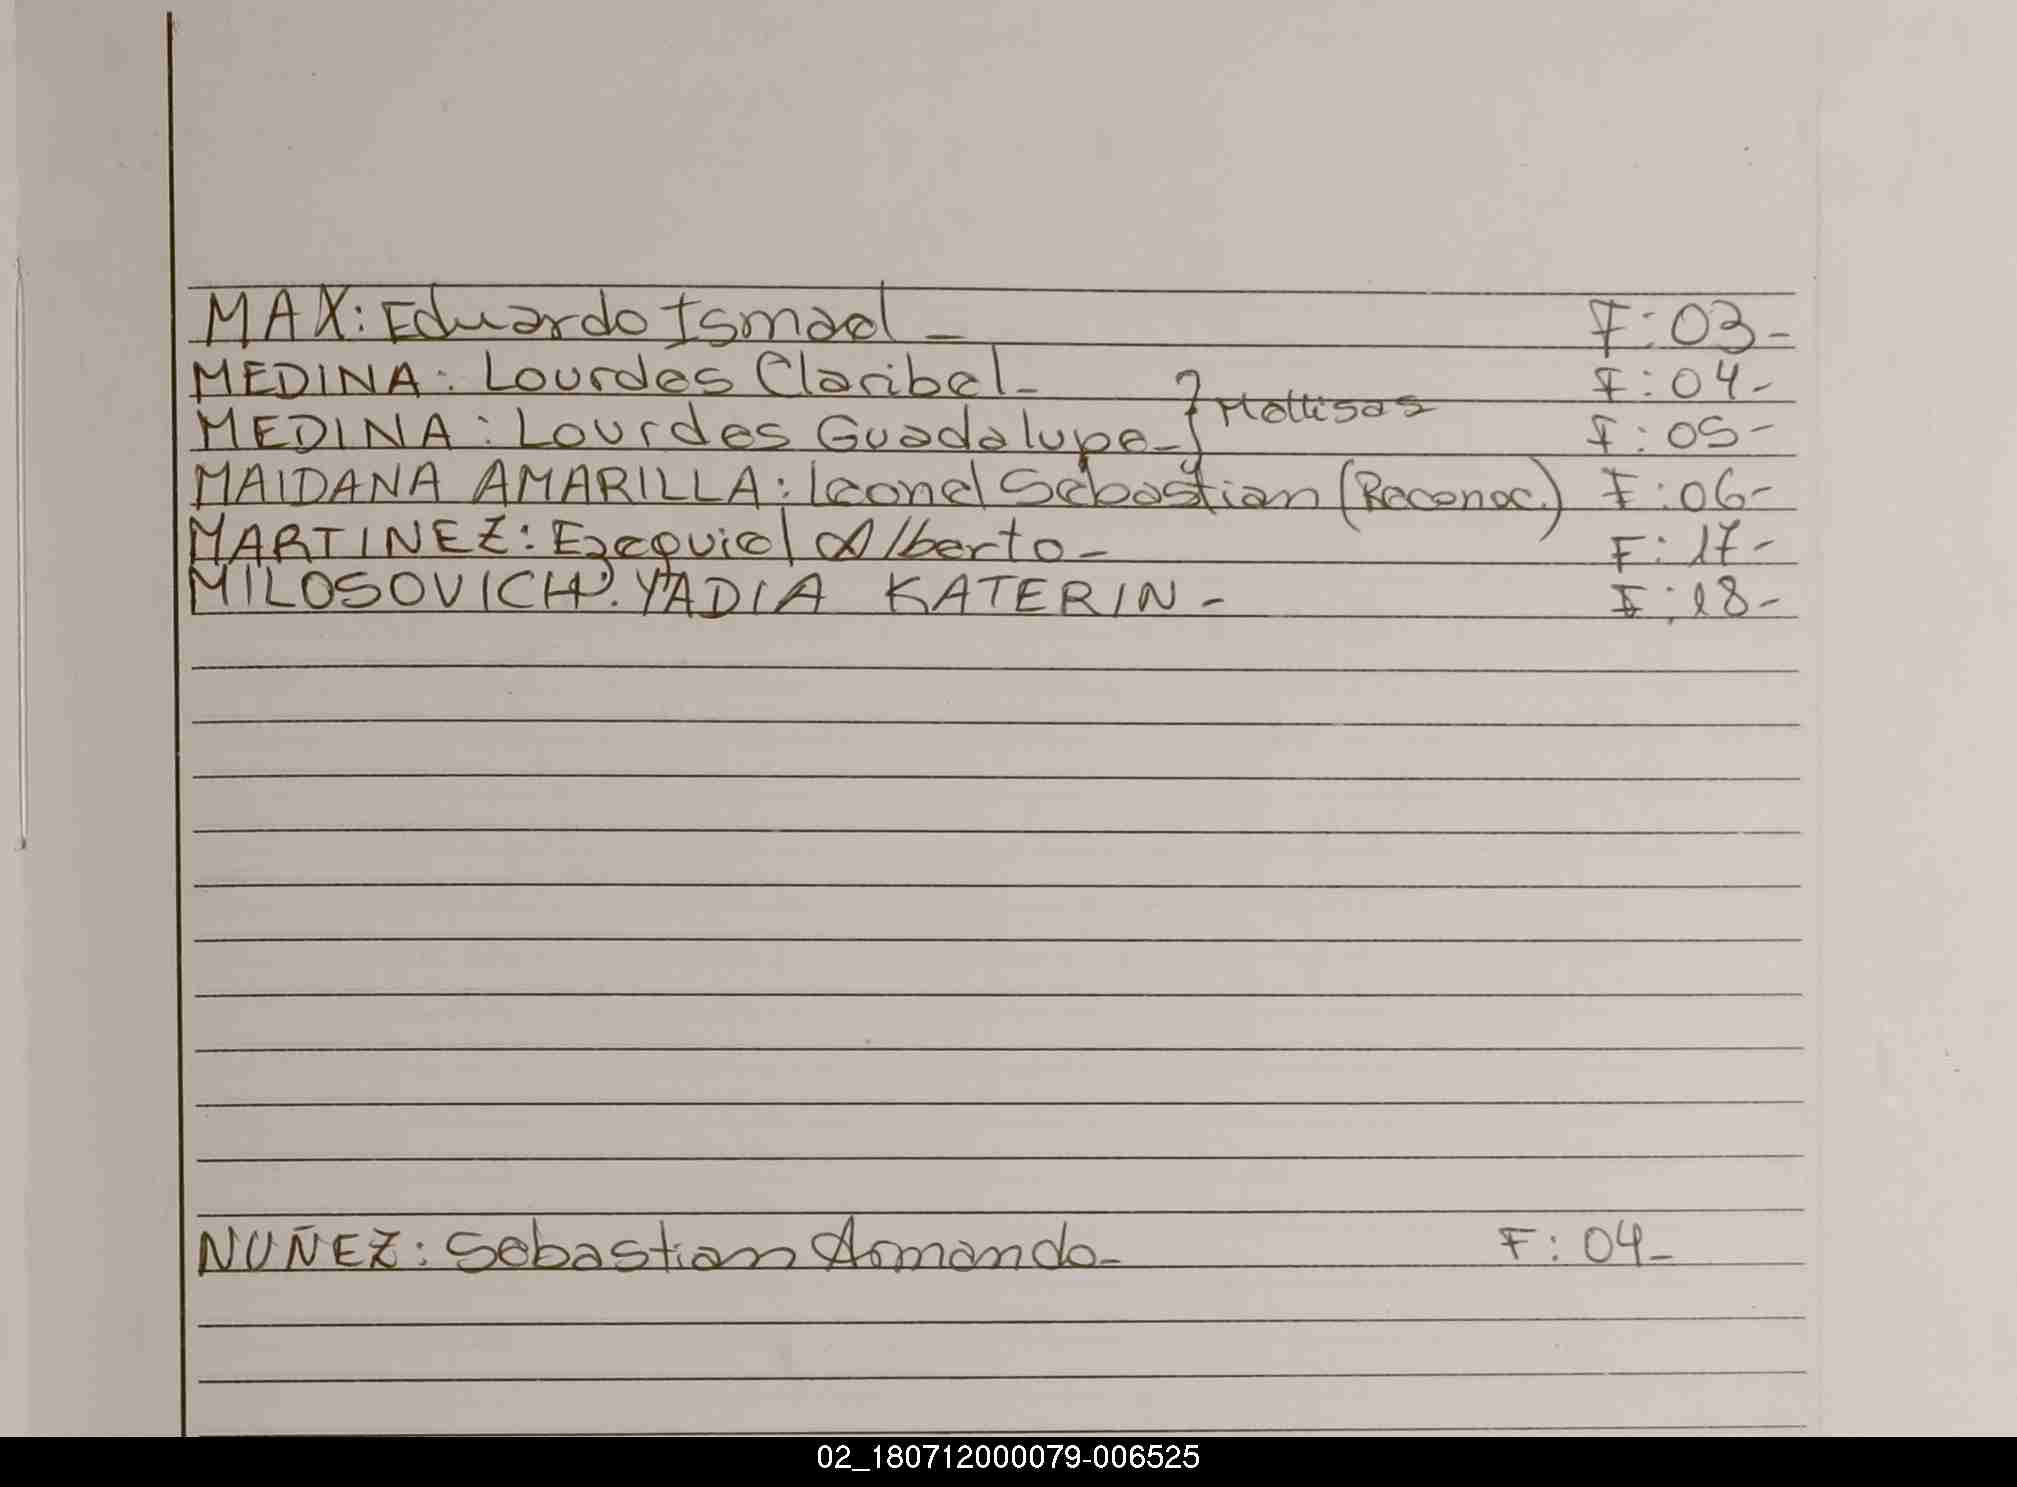 MAX: Eduardo Ismael - F: 03-
MEDINA: Lourdes Claribel - F: 04-
} Mellisas
MEDINA: Lourdes Guadalupe - F: 05-
MAIDANA AMARILLA: Leonel Sebastian (Reconoc.) F: 06-
MARTINEZ: Ezequiel Alberto - F: 17-
MILOSOVICH: YADIA KATERIN - F: 18-
NUÑEZ: Sebastian Armando - F: 04-
02_180712000079-006525